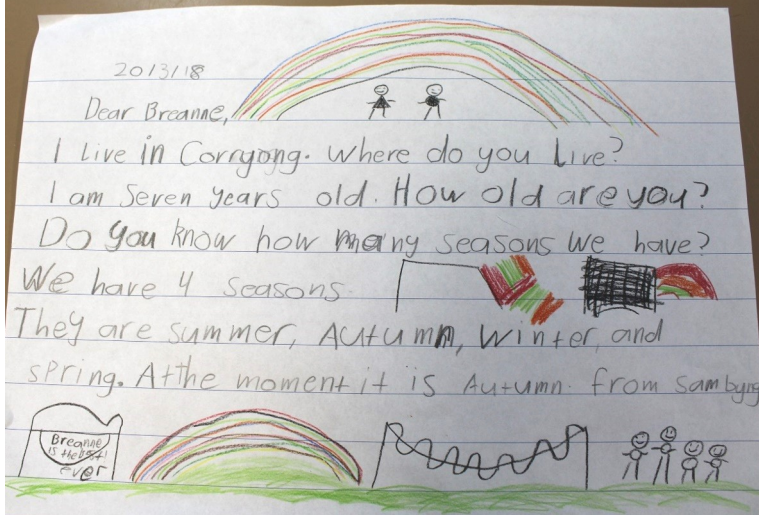 20/3/18
Dear Breanne,
I live in Corryong. Where do you Live?
I am Seven years old. How old are you?
Do you know how many seasons we have?
We have 4 seasons.
They are summer, Autumn, Winter, and
spring. At the moment it is Autumn. from Sam byng
Breanne
is the best!
ever